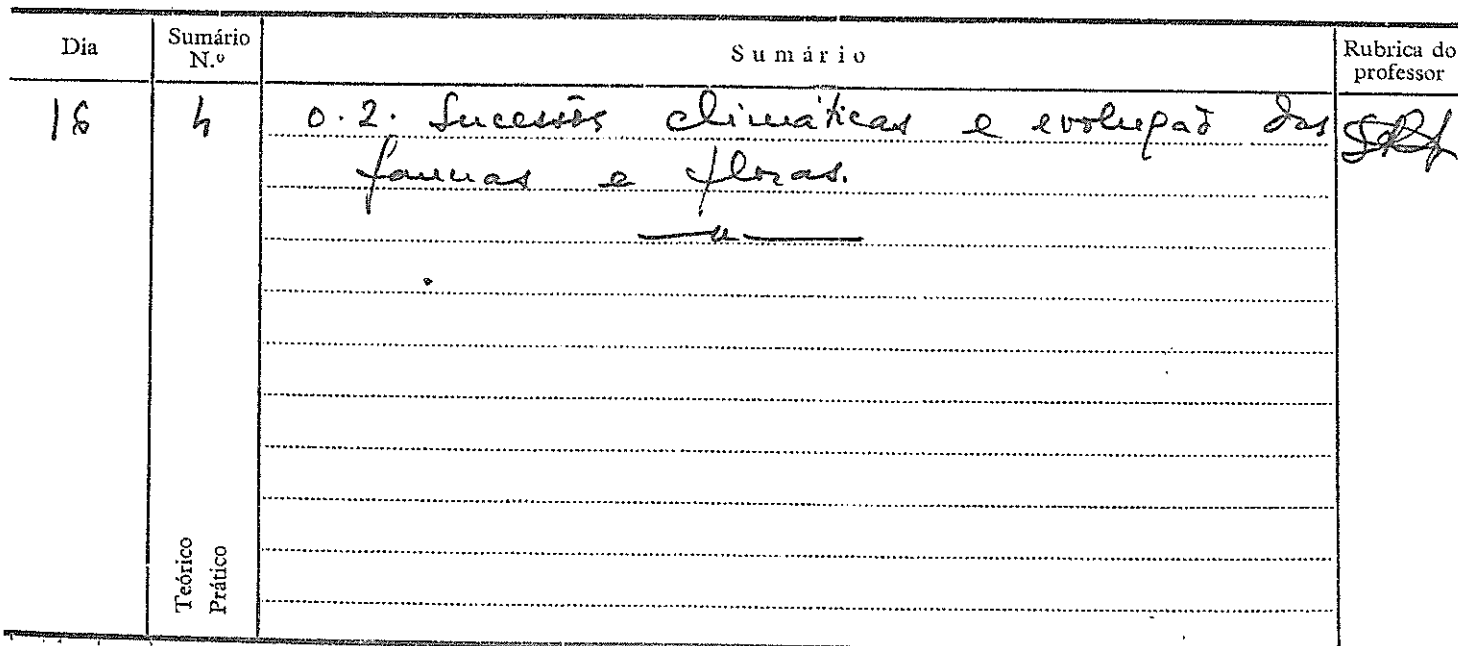 Dia
Sumário
N.º
Sumário
Rubrica do
professor
4
0.2. Sucessões climáticas e evolução das
faunas e floras.
Teórico
Prático